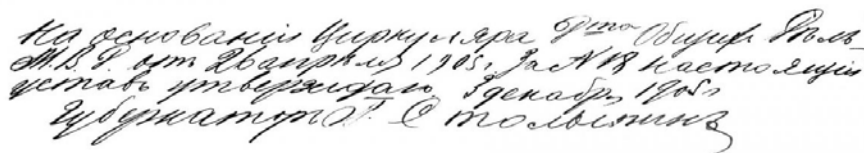 На основаніи Циркуляра Д-та Общихъ Дѣлъ
М.В.Д. отъ 26 апрѣля 1905 г. За № 18 настоящій
уставъ утверждаю. 3 декабря 1905 г.
Губернаторъ П. Столыпинъ